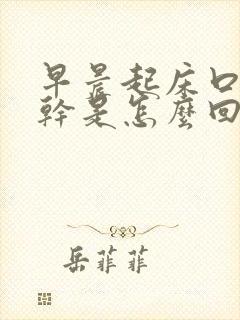 早晨起床口
幹是怎麼回
岳菲菲